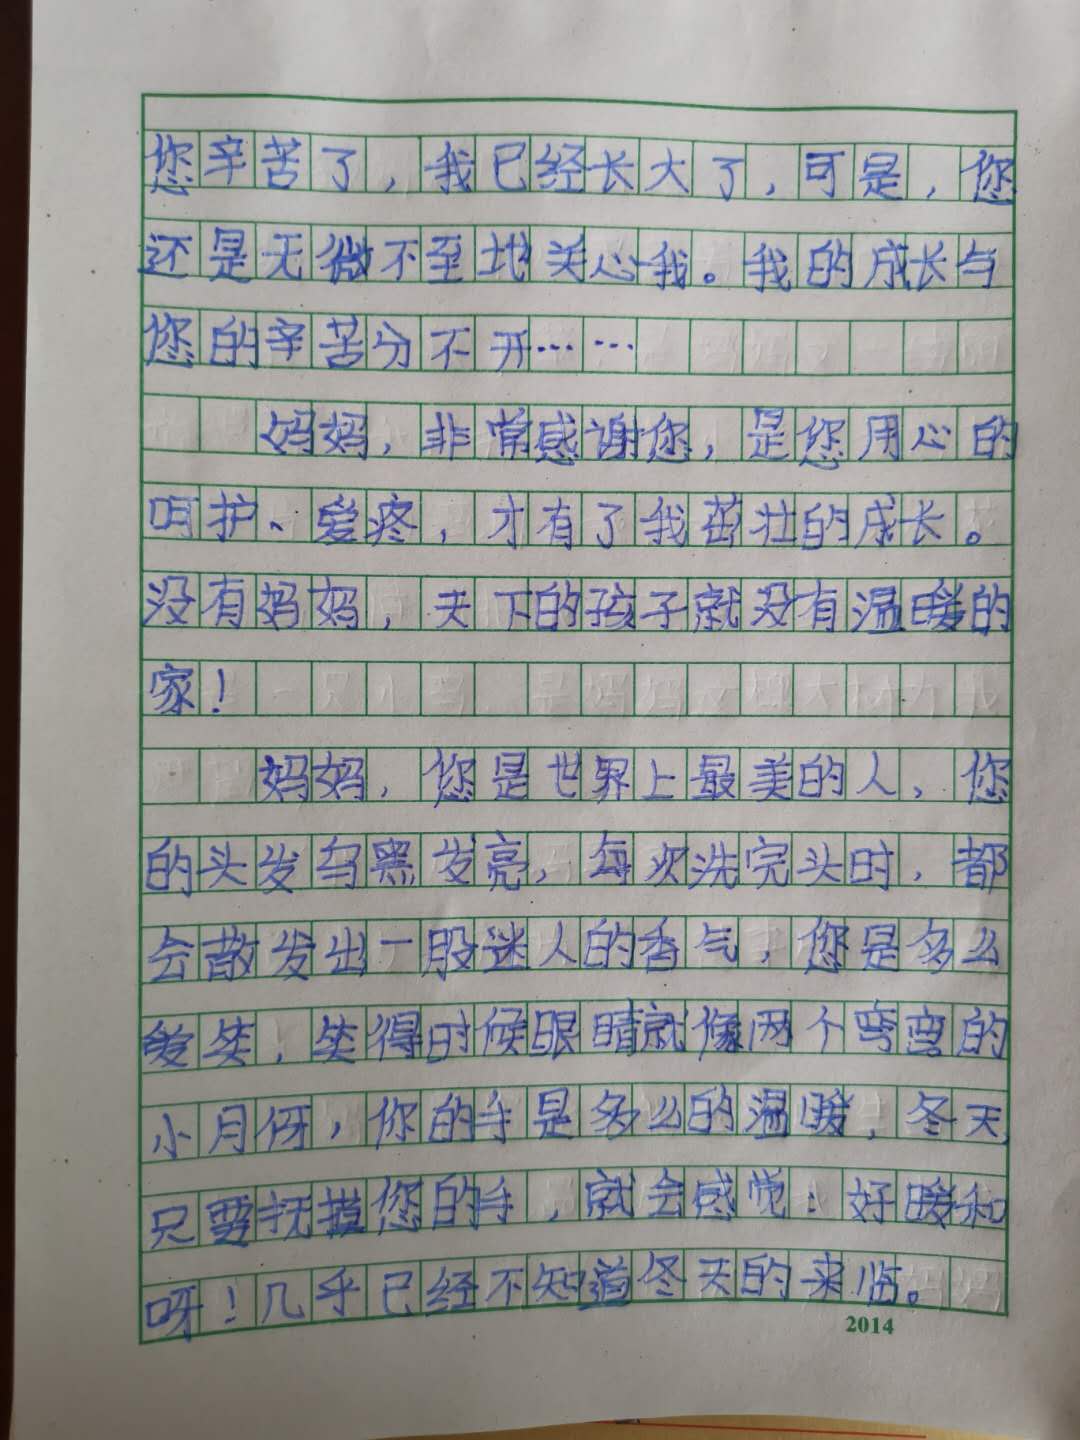 您辛苦了,我已经长大了,可是,您
还是无微不至地关心我。我的成长与
您的辛苦分不开……
妈妈,非常感谢您,是您用心的
呵护、爱疼,才有了我茁壮的成长。
没有妈妈,天下的孩子就没有温暖的
家!
妈妈,您是世界上最美的人,您
的头发乌黑发亮,每次洗完头时,都
会散发出一股迷人的香气,您是多么
爱笑,笑得时候眼睛就像两个弯弯的
小月伢,你的手是多么的温暖,冬天
只要抚摸您的手,就会感觉:好暖和
呀!几乎已经不知道冬天的来临。
2014